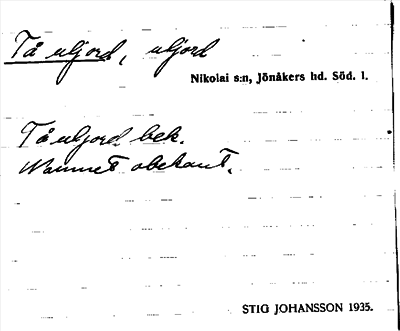 Tå uljord, uljord
Nikolai s:n, Jönåkers hd. Söd. l.
Tå uljord bek.
Namnet obekant.
STIG JOHANSSON 1935.